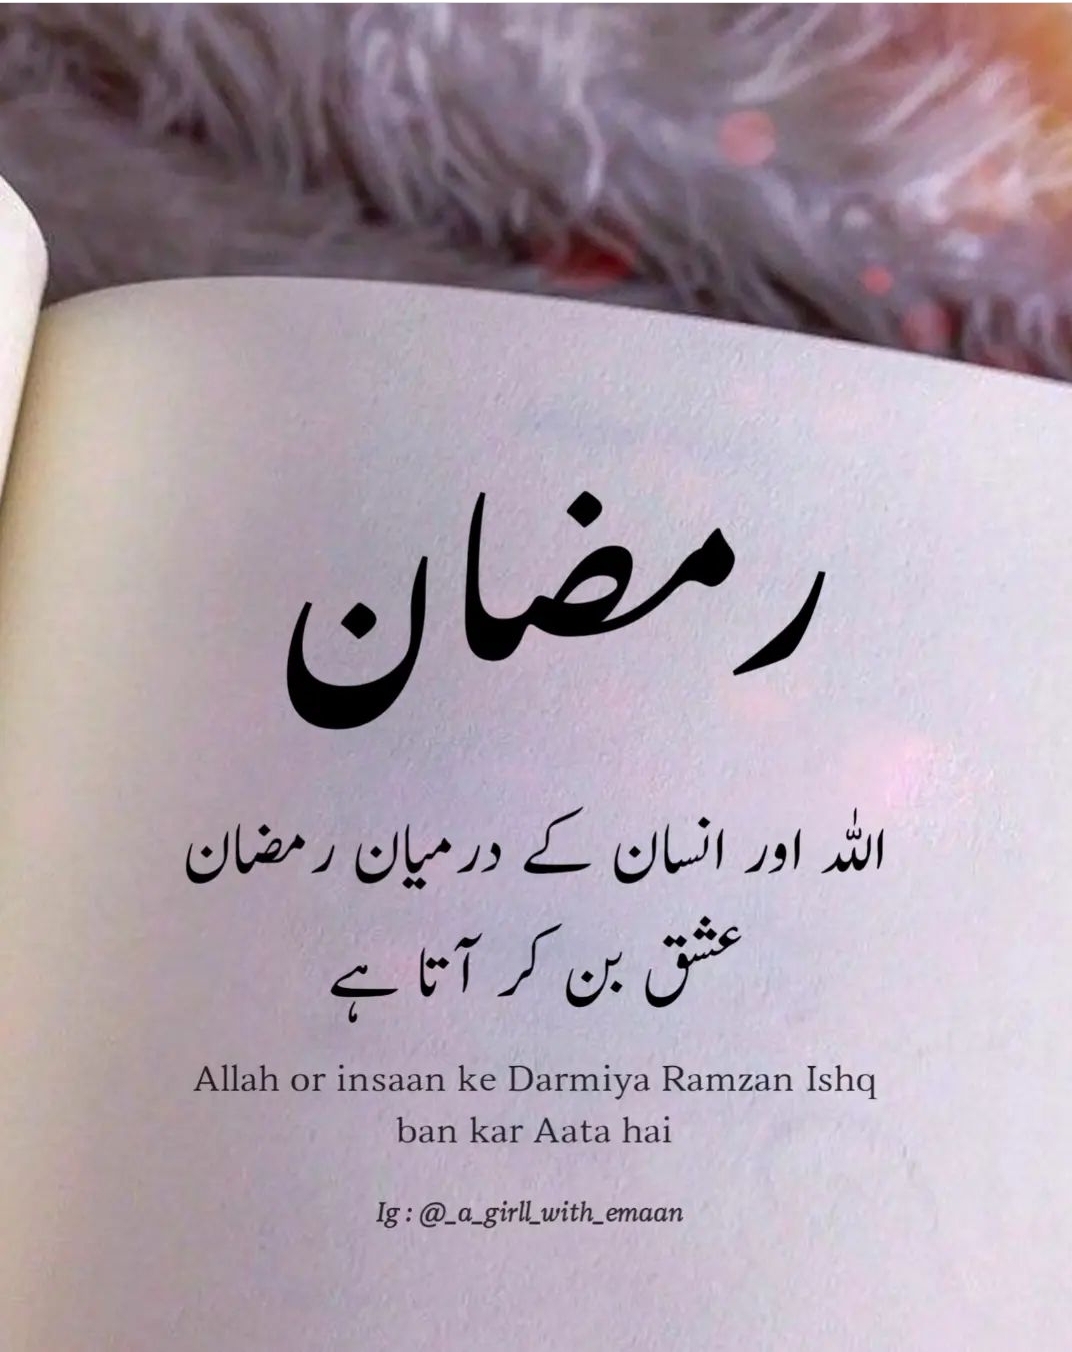 رمضان
اللہ اور انسان کے درمیان رمضان
عشق بن کر آتا ہے
Allah or insaan ke Darmiya Ramzan Ishq
ban kar Aata hai
Ig : @_a_girll_with_emaan